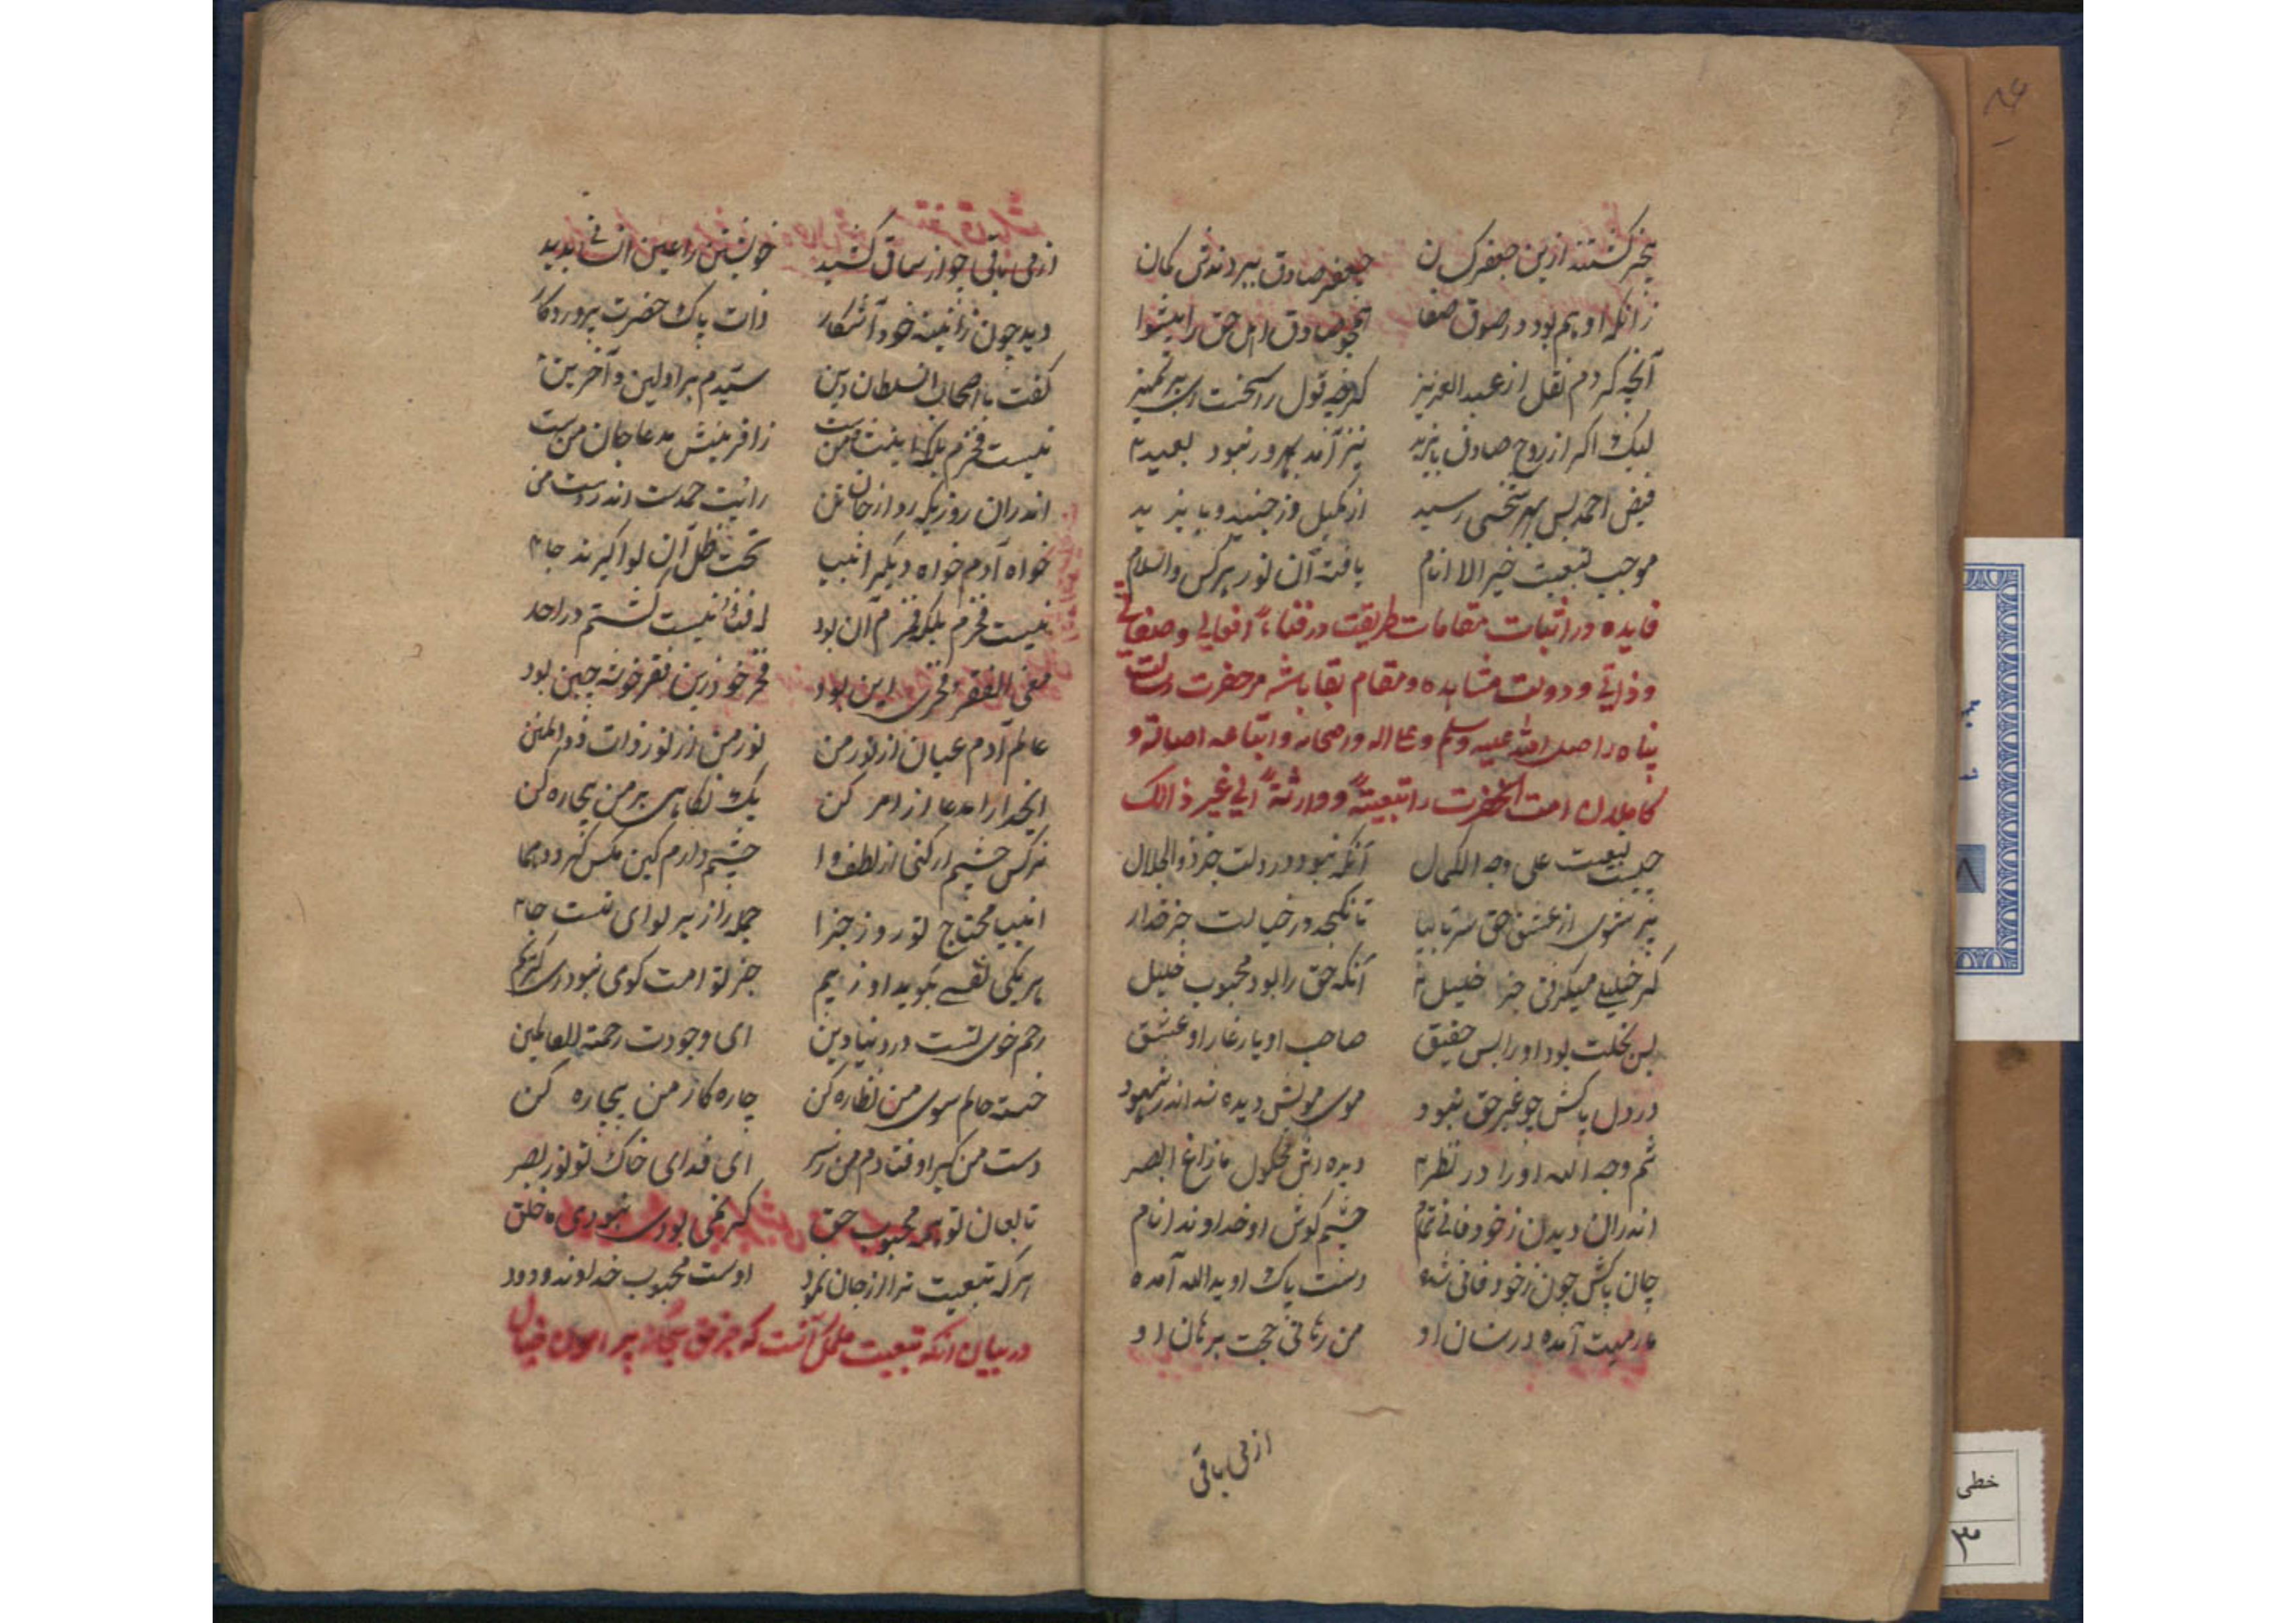 بیخبر گشتند ازین جعفر کسان جعفر صادق ببردندش گمان
زانکه او هم بود در صدق صفا همچو صادق اهل حق را پیشوا
آنچه کردم نقل از عبدالعزیز گرچه قول راسخست ای پر تمیز
لیک اکر از روح صادق بایزید نیز آمد بهرور نبود بعید
فیض احمد بس بهر شخصی رسید از کمیل وز جنید و بایزید
موجب تبعیت خیر الا انام یافته آن نور هر کس والسلام
فایده در اثبات مقامات طریقت در فناء افعالی و صفاتی
و ذاتی و دولت مشاهده و مقام بقا باشه مر حضرت رسالت
پناه را صلی الله علیه وسلم و علی اله و اصحابه و اتباعه اصالة و
کاملان امت انحضرت را تبعیتهً و وارثةً الی غیر ذالک
چیست تبعیت علی وجه الکمال آنکه نبود در دلت جز ذوالجلال
پر شوی از عشق حق سر تا بپا تا نگنجد در خیالت جز خدا
گر خلیلی میگرفتی جز خلیل آنکه حق را بود محبوب خلیل
بس بخلت بود او را بس حقیق صاحب او یار غار او عتیق
در دل پاکش چو غیر حق نبود موی مویش دیده شد اندر شهود
ثم وجه الله او را در نظر دیده اش مکحول مازاغ البصر
اندران دیدن ز خود فانی تمام چشم کوش او خداوند انام
جان پاکش چون ز خود فانی شده دست پاک او یدالله آمده
مارمیت آمده در شان او من رآنی حجت برهان او
از می باقی
از می باقی چو از ساقی کشید خویشتن را عین انسانی بدید
دید چون زائینه خود آشکار ذات پاک حضرت پروردکار
گفت با اصحاب السلطان دین سیدم بر اولین و آخرین
نیست فخرم بلکه اینست فخر من زافرینش مدعا جان منست
اندران روزیکه رود از جان تن رائیت حمدست اندر دست من
خواه آدم خواه دیگر انبیا تحت ظل آن لوا گیرند جا
نیست فخرم بلکه فخرم آن بود که فنا نیست گشتم در احد
معنی الفقر فخری این بود فخر خود زین فقر خود چنین بود
عالم آدم عیان از نور من نور من از نور ذات ذوالمنن
ایخدا را مدعا از امر کن یک نکاهی بر من بیچاره کن
نرگس چشم ار کنی از لطف وا چشم دارم کین مکس گردد هما
انبیا محتاج تو روز جزا جمله را زیر لوای تست جا
هر یکی نفسی بکوید او ز بیم جز تو امت کوی نبود ای کریم
رحم خوی تست در دنیا و دین ای وجودت رحمة للعالمین
خسته حالم سوی من نظاره کن چاره کار من بیچاره کن
دست من گیر اوفتادم من ز سر ای فدای خاک تو نور بصر
تابعان تو همه محبوب حق گر نمی بودی نبودی خلق
هر که تبعیت ترا از جان نمود اوست محبوب خداوند ودود
در بیان انکه تبعیت مکمل آنست که جز حق بیکانه پیرامون خیال
خطی
۳